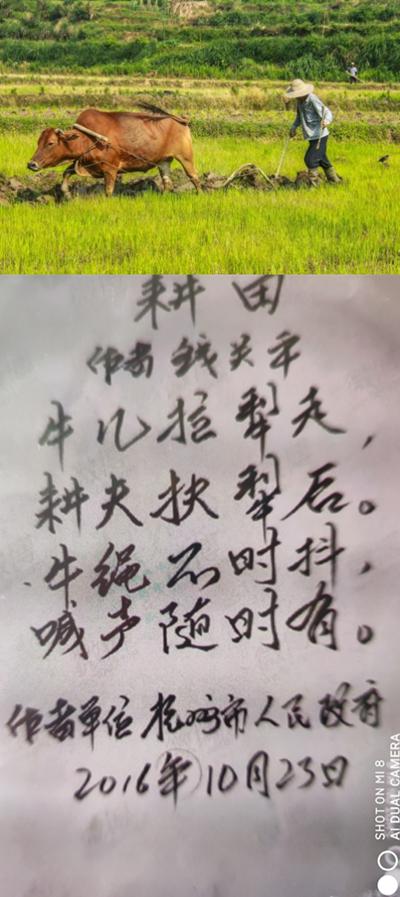 耕田
作者 钱关
牛儿拉犁走，
耕夫扶犁后。
牛绳不时抖，
喊声随时有。
作者单位 杭州市人民政府
2016年10月23日
SHOT ON MI 8
AI DUAL CAMERA